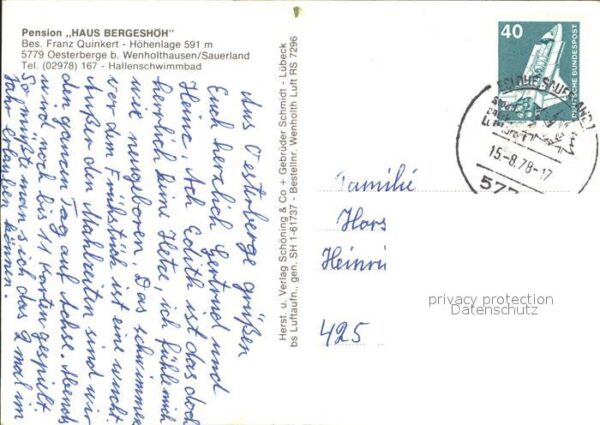 Pension „HAUS BERGESHÖH"
Bes. Franz Quinkert - Höhenlage 591 m
5779 Oesterberge b. Wenholthausen/Sauerland
Tel. (02978) 167 - Hallenschwimmbad
Aus Oesterberge grüßen
Euch herzlich Gertrud und
Heinz. Ach Edith ist das doch
herrlich keine Hetze, ich fühle mich
wie neugeboren. Das schwimmen
vor dem Frühstück ist eine wucht.
Außer den Mahlzeiten sind wir
den ganzen Tag auf Achse. Abends
wird noch bis 11 Karten gespielt.
So müßte man sich das 2 mal im
Jahr erlauben können.
Herst. u. Verlag Schöning & Co + Gebrüder Schmidt - Lübeck
bs Luftaufn., gen. SH 1-61737 - Bestellnr. Wenholth Luft RS 7296
40
DEUTSCHE BUNDESPOST
15.-8.78-17
577
Familie
Hors
Heinri
425
privacy protection
Datenschutz